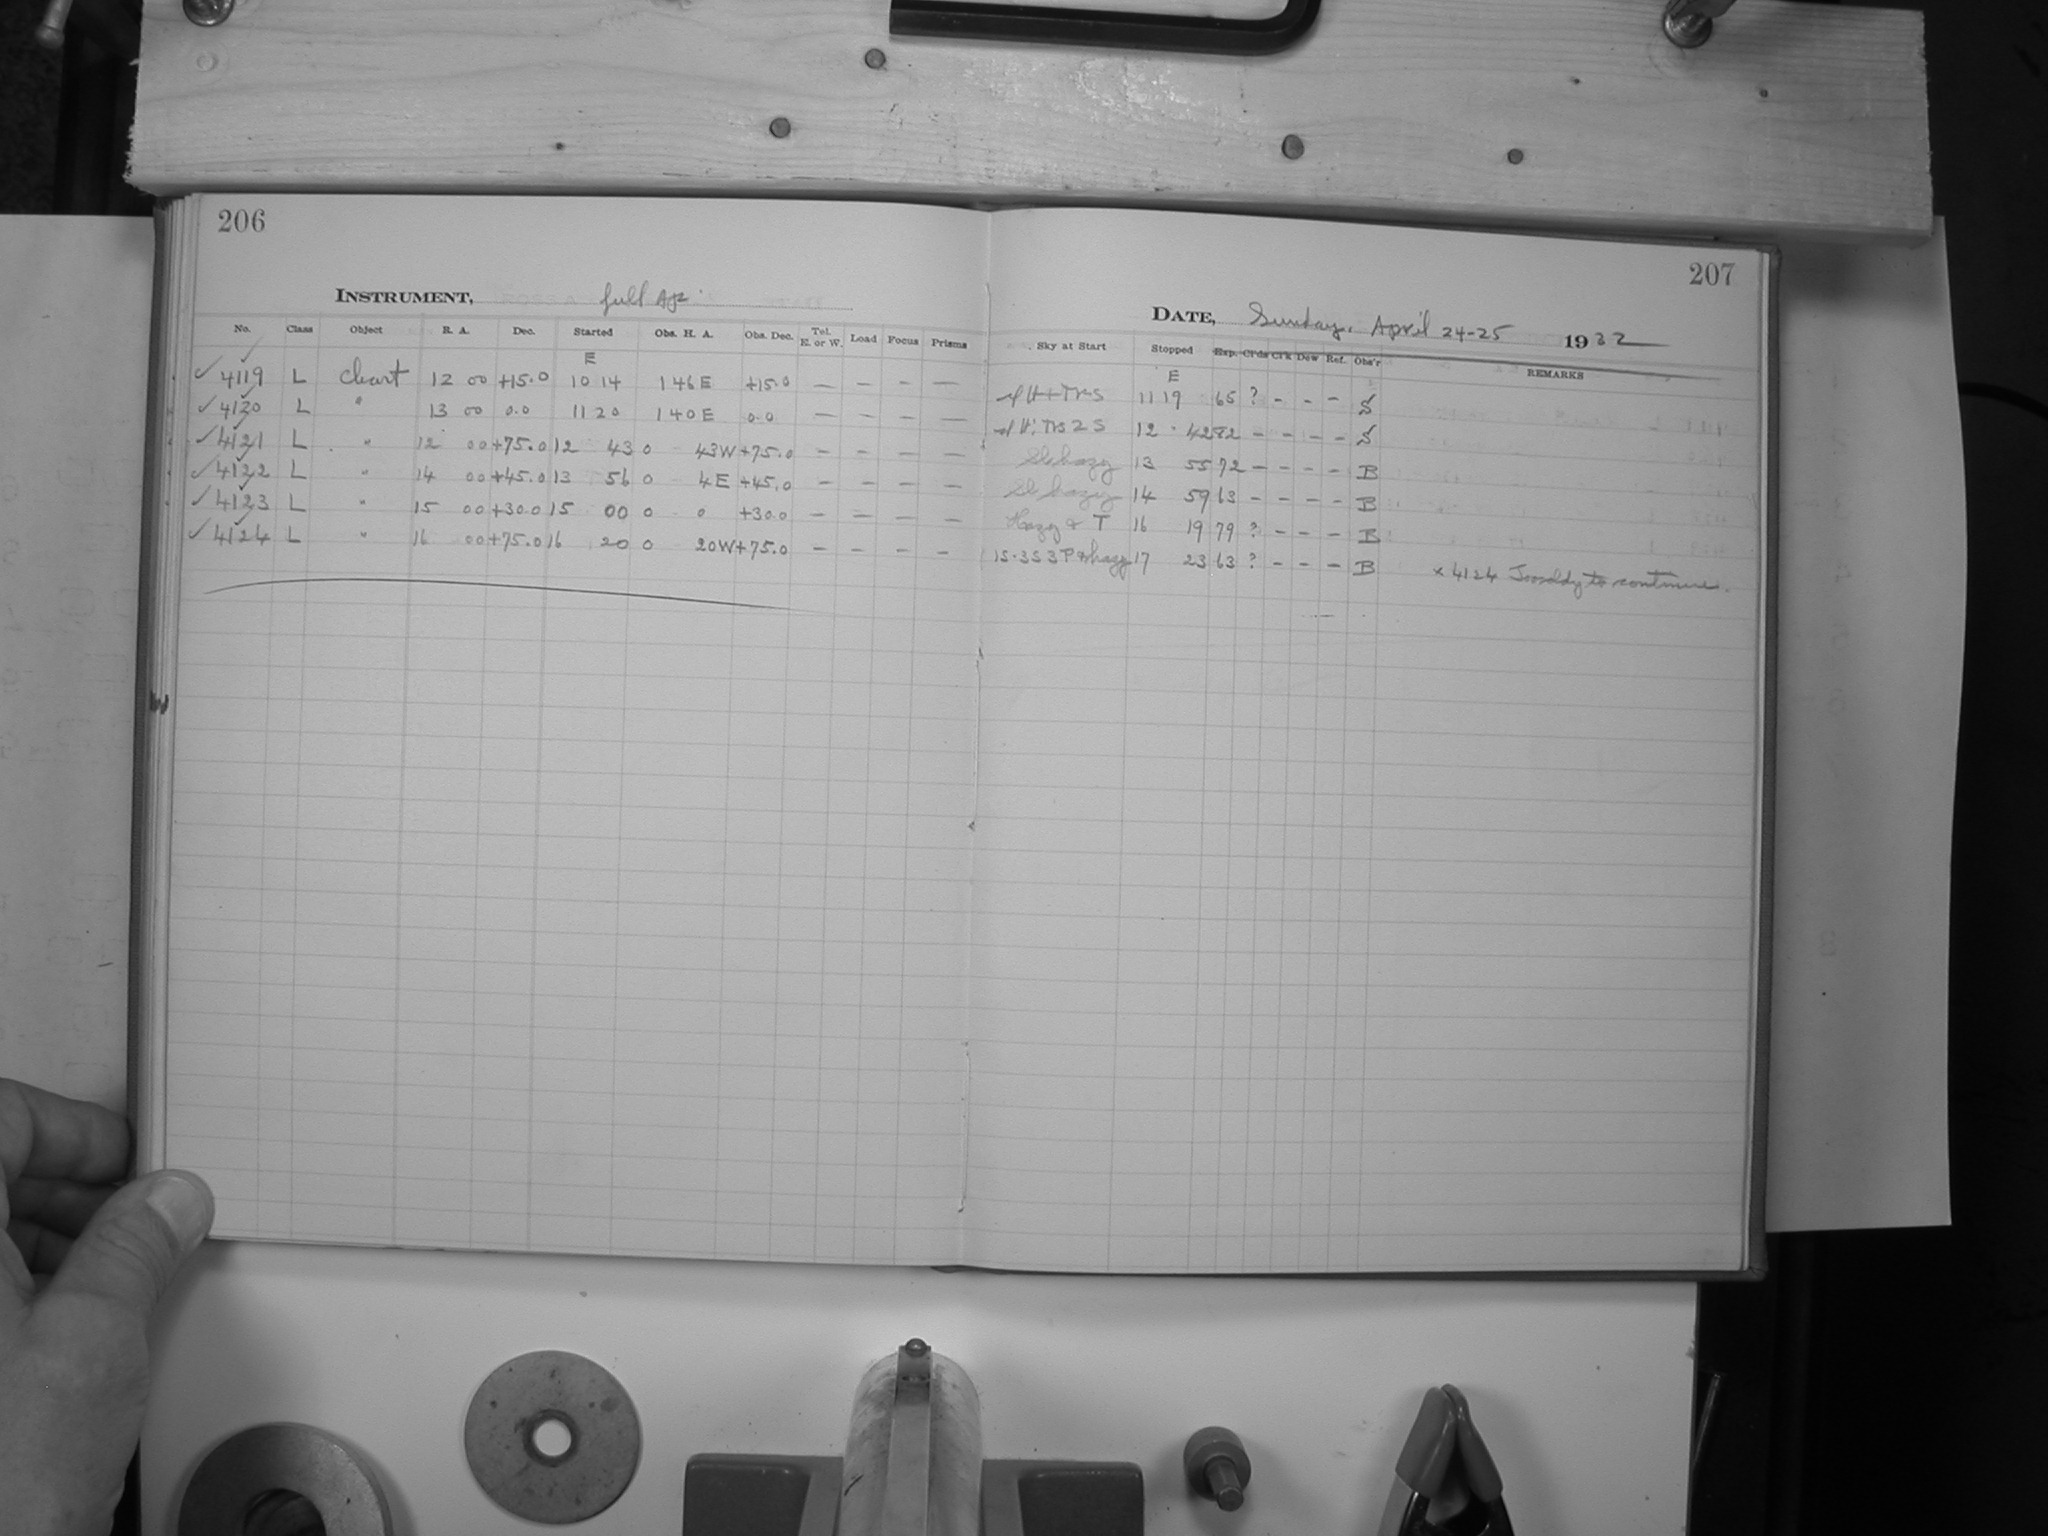 206
INSTRUMENT, full Ap.
No. Class Object R. A. Dec. Started Obs. H. A. Obs. Dec. Tel. E. or W. Load Focus Prisms
E
✓ 4119 L Chart 12 00 +15.0 10 14 1 46 E +15.0 — — — —
✓ 4120 L " 13 00 0.0 11 20 1 40 E 0.0 — — — —
✓ 4121 L " 12 00 +75.0 12 43 0 43W +75.0 — — — —
✓ 4122 L " 14 00 +45.0 13 56 0 4 E +45.0 — — — —
✓ 4123 L " 15 00 +30.0 15 00 0 0 +30.0 — — — —
✓ 4124 L " 16 00 +75.0 16 20 0 20W +75.0 — — — —
207
DATE, Sunday, April 24-25 1932
Sky at Start Stopped Exp. Cl'ds Cl'k Dew Ref. Obs'r REMARKS
E
11 19 65 ? - - - S
12 42 82 - - - - S
Sl hazy 13 55 72 - - - - B
Sl hazy 14 59 63 - - - - B
Hazy & T 16 19 79 ? - - - B
hazy 17 23 63 ? - - - B × 4124 Too cldy to continue.